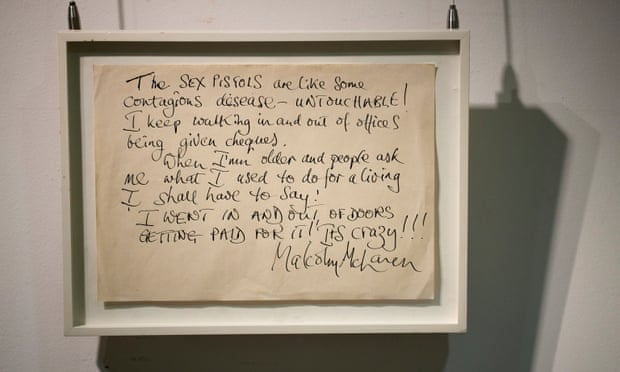 The SEX PISTOLS are like some
contagious disease – UNTOUCHABLE!
I keep walking in and out of offices
being given cheques.
When I'm older and people ask
me what I used to do for a living
I shall have to say!
'I WENT IN AND OUT OF DOORS
GETTING PAID FOR IT!' ITS CRAZY!!!
Malcolm McLaren